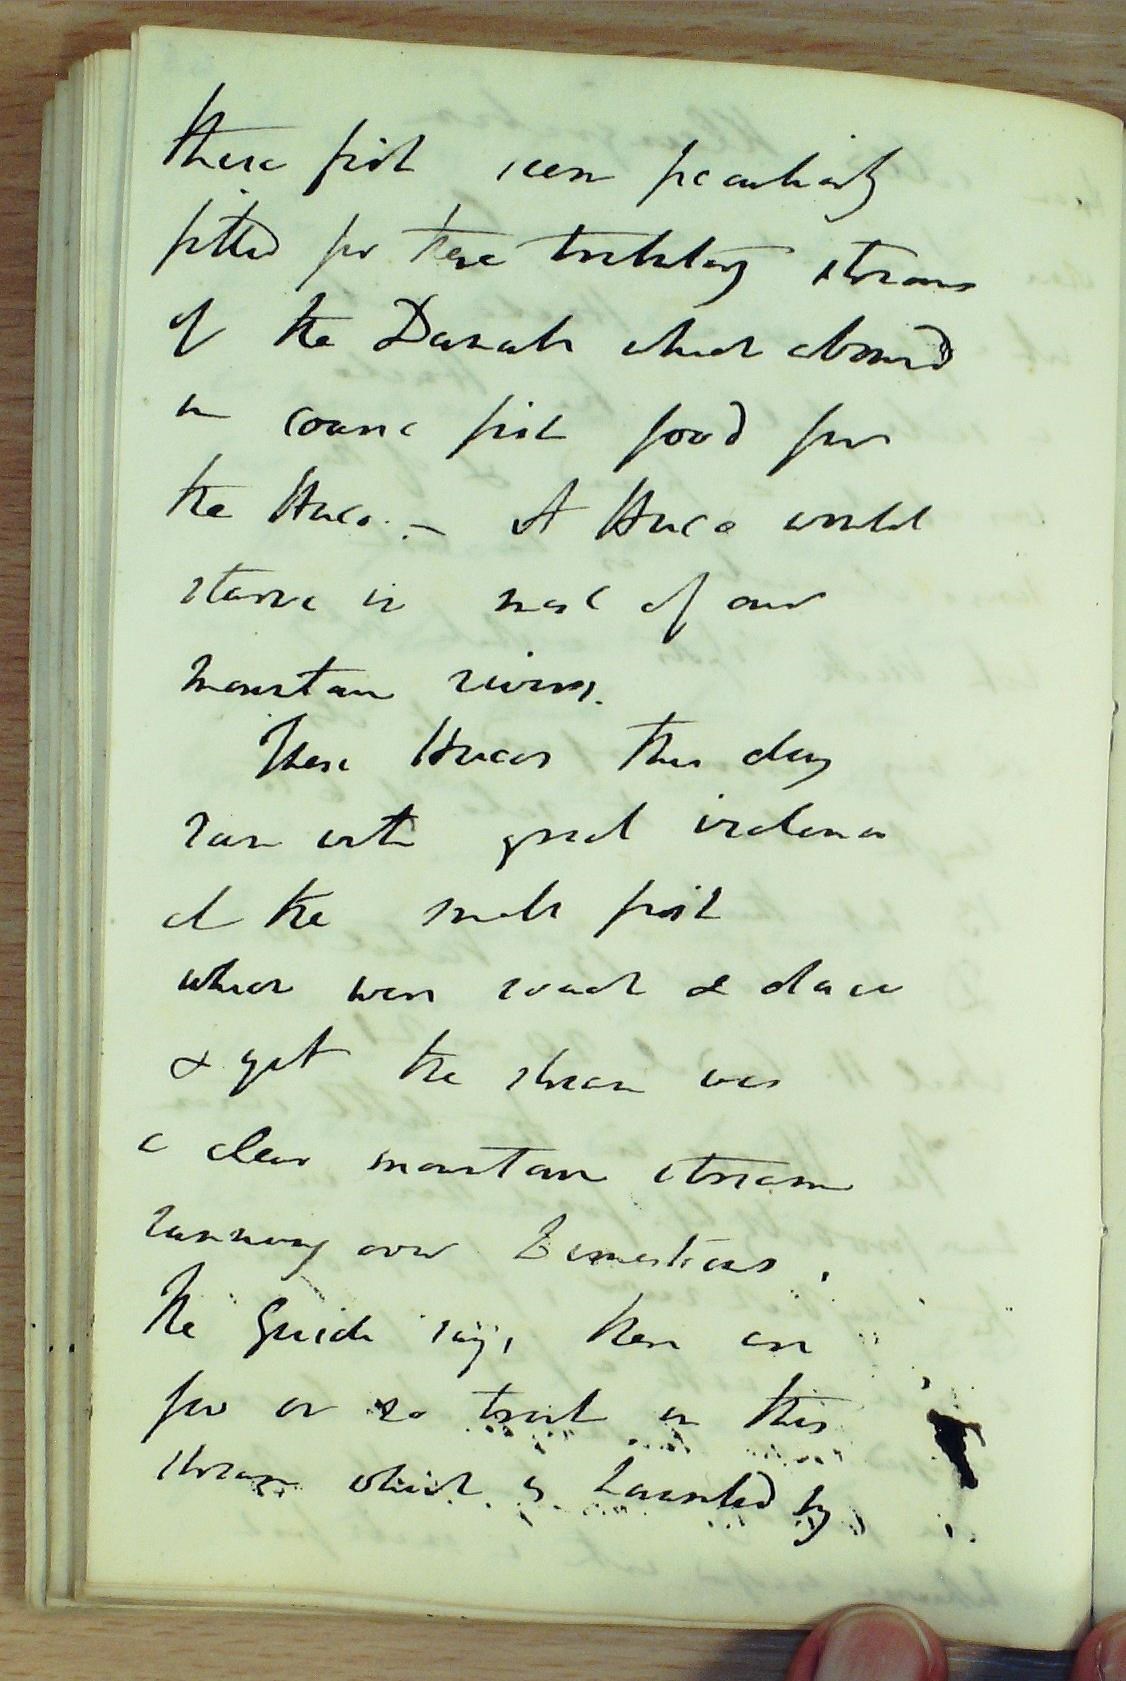 these fish seem peculiarly
fitted for these tributary streams
of the Danube which abound
in coarse fish food for
the Huco. - A Huco would
starve in most of our
mountain rivers.
These Hucos this day
ran with great violence
at the small fish
which were roach & dace
& yet the stream was
a clear mountain stream
running over Limestones,
the Guide says there are
few or no trout in this
stream which is haunted by